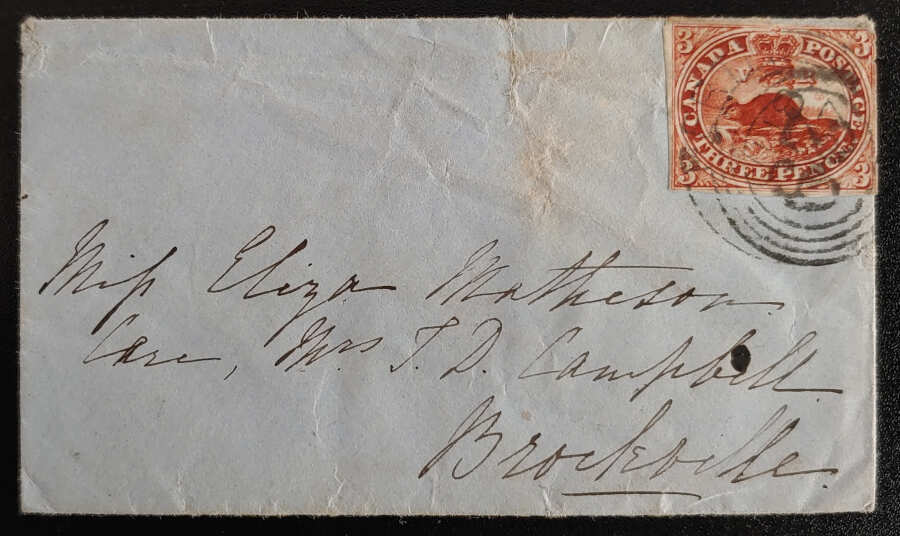 3 CANADA POSTAGE 3
3 THREE PENCE 3
Miss Eliza Matheson
Care, Mrs T. D. Campbell
Brockville